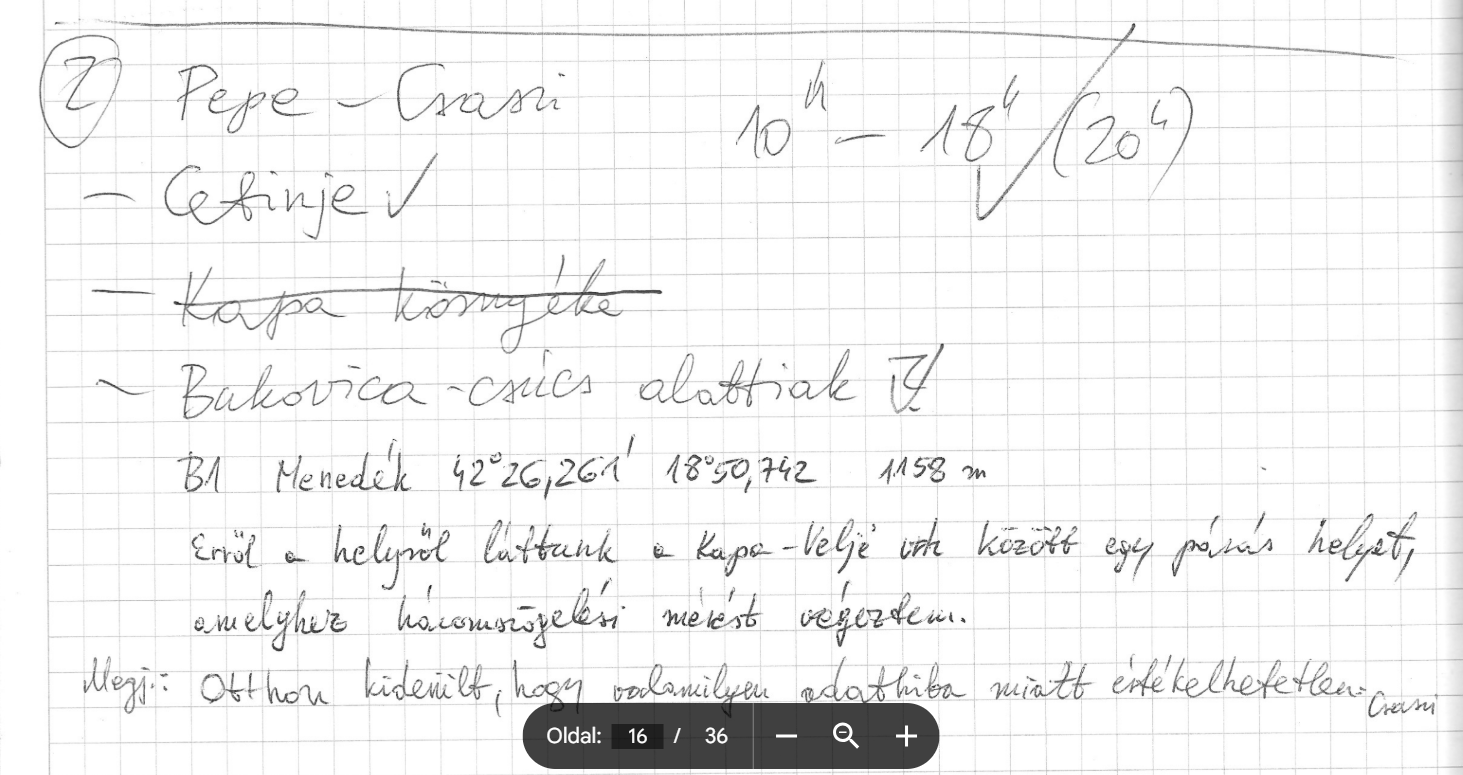 ② Pepe – Csasi 10ʰ – 18ʰ (20ʰ)
– Cetinje ✓
– ~~Kapa környéke~~
– Bukovica-csúcs alattiak
B1 Menedék 42°26,261' 18°50,742 1158 m
Erről a helyről láttunk a Kapa-Velje vrh között egy párás helyet,
amelyhez háromszögelési mérést végeztem.
Megj.: Otthon kiderült, hogy valamilyen adathiba miatt értékelhetetlen. Csasi
Oldal: 16 / 36